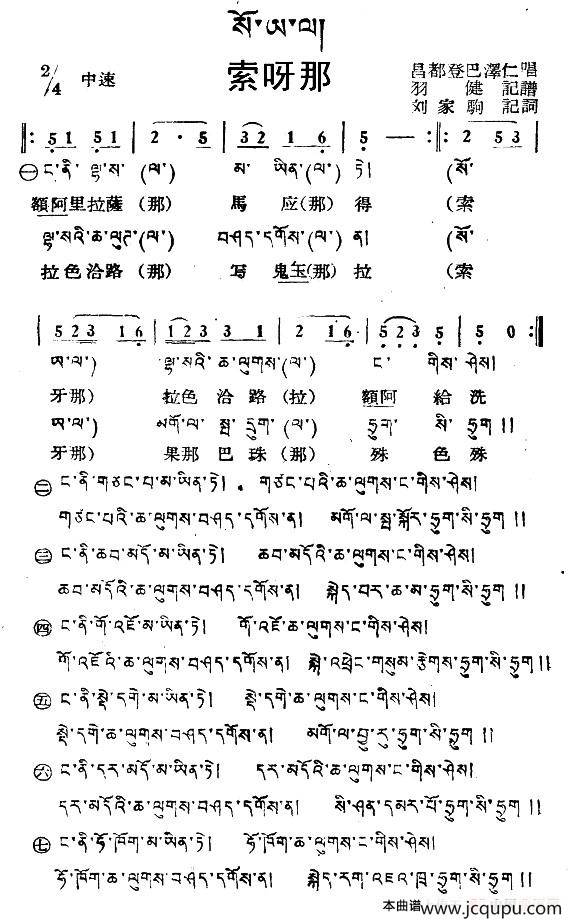 སོ་ཨ་ལ།
索呀那
2/4 中速
昌都登巴澤仁唱
羽健記譜
刘家駒記詞
‖: 5 1 5 1 | 2 · 5 | 3 2 1 6 | 5 — :‖: 2 5 3 |
㊀ ང་ནི་ལྷ་ས་(ལ་) མ་ཡིན་(ལ་) ཏེ། (སོ་
額阿里拉薩(那) 馬应(那)得 (索
ལྷ་སའི་ཆ་ལུད་(ལ་) བཤད་དགོས་(ལ་) ན། (སོ་
拉色洽路(那) 写鬼玉(那)拉 (索
| 5 2 3 1 6 | 1 2 3 3 1 | 2 1 6 | 5 2 3 5 | 5 0 :‖
ཨ་ལ་) ལྷ་སའི་ཆ་ལུགས་(ལ་) ང་གིས་ཤེས།
牙那) 拉色洽路(拉) 額阿給洗
ཨ་ལ་) མགོ་ལ་སྤྲ་དྲུག་(ལ་) ཧྲུག་སི་ཧྲུག །།
牙那) 果那巴珠(那) 殊色殊
㊁ ང་ནི་གཙང་པ་མ་ཡིན་ཏེ། གཙང་པའི་ཆ་ལུགས་ང་གིས་ཤེས།
གཙང་པའི་ཆ་ལུགས་བཤད་དགོས་ན། མགོ་ལ་སྤྲ་སྐོར་ཧྲུག་སི་ཧྲུག །།
㊂ ང་ནི་ཆབ་མདོ་མ་ཡིན་ཏེ། ཆབ་མདོའི་ཆ་ལུགས་ང་གིས་ཤེས།
ཆབ་མདོའི་ཆ་ལུགས་བཤད་དགོས་ན། སྐེད་བར་ཆ་མ་ཧྲུག་སི་ཧྲུག །།
㊃ ང་ནི་གོ་འཇོ་མ་ཡིན་ཏེ། གོ་འཇོའི་ཆ་ལུགས་ང་གིས་ཤེས།
གོ་འཇོའི་ཆ་ལུགས་བཤད་དགོས་ན། སྐེ་འཕྲེང་གསུམ་རྩེགས་ཧྲུག་སི་ཧྲུག །།
㊄ ང་ནི་སྡེ་དགེ་མ་ཡིན་ཏེ། སྡེ་དགེ་ཆ་ལུགས་ང་གིས་ཤེས།
སྡེ་དགེ་ཆ་ལུགས་བཤད་དགོས་ན། མགོ་ལ་བྱུ་རུ་ཧྲུག་སི་ཧྲུག །།
㊅ ང་ནི་དར་མདོ་མ་ཡིན་ཏེ། དར་མདོའི་ཆ་ལུགས་ང་གིས་ཤེས།
དར་མདོའི་ཆ་ལུགས་བཤད་དགོས་ན། སི་ཤན་དམར་པོ་ཧྲུག་སི་ཧྲུག །།
㊆ ང་ནི་ཧོ་ཁོག་མ་ཡིན་ཏེ། ཧོ་ཁོག་ཆ་ལུགས་ང་གིས་ཤེས།
ཧོ་ཁོག་ཆ་ལུགས་བཤད་དགོས་ན། སྐེད་རག་འཇའ་ཁྲ་ཧྲུག་སི་ཧྲུག །།
本曲谱 www.jcqupu.com